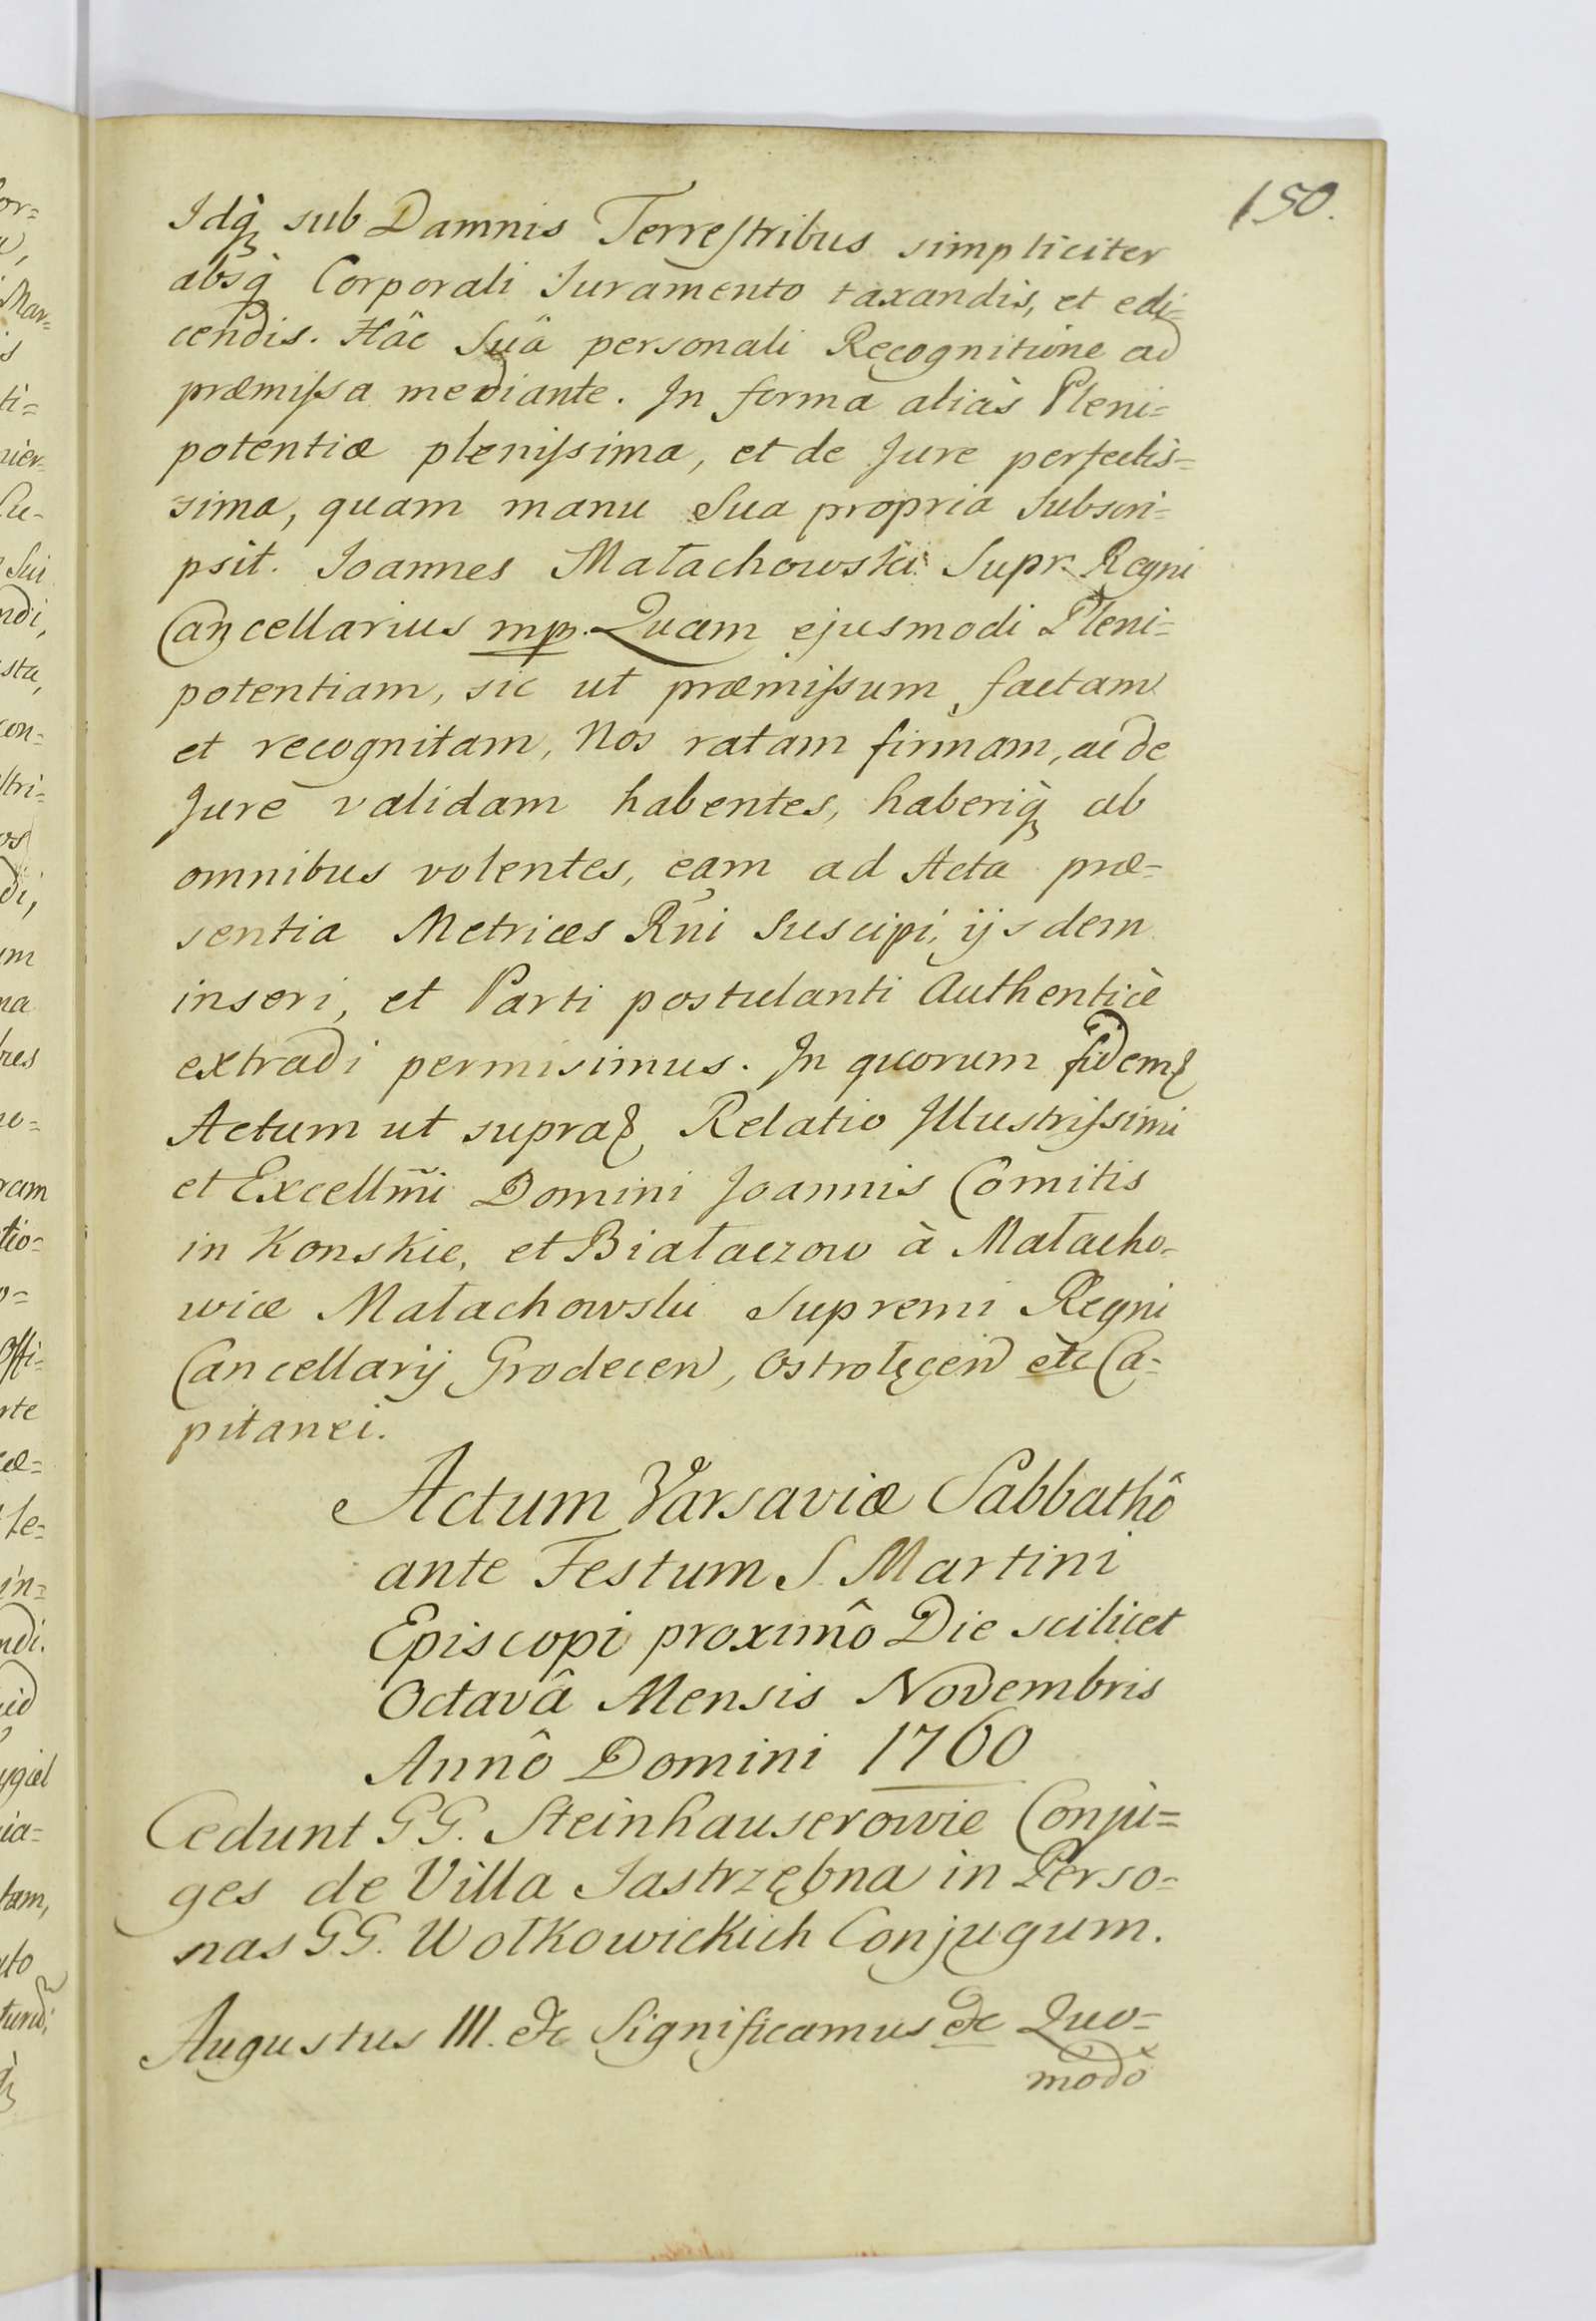 150.
Idq̀ sub Damnis Terrestribus simpliciter
absq̀ Corporali Juramento taxandis, et edi=
cendis. Hâc Suâ personali Recognitione ad
præmissa mediante. In forma aliàs Pleni=
potentiæ plenissima, et de Jure perfectis=
sima, quam manu Sua propria Subscri=
psit. Joannes Małachowski Supr. Regni
Cancellarius mp. Quam ejusmodi Pleni=
potentiam, sic ut præmissum factam
et recognitam, Nos ratam firmam, ac de
Jure validam habentes, haberiq̀ ab
omnibus volentes, eam ad Acta præ=
sentia Metrices Rñi Suscipi, ijsdem
inseri, et Parti postulanti Authenticè
extradi permisimus. In quorum fidem&
Actum ut supra& Relatio Illustrissimi
et Excellm̃i Domini Joannis Comitis
in Konskie, et Białaczow à Małacho=
wice Małachowski Supremi Regni
Cancellarij Grodecen, Ostrołęcen etc Ca=
pitanei.
Actum Varsaviæ Sabbathô
ante Festum S. Martini
Episcopi proximô Die scilicet
Octavâ Mensis Novembris
Annô Domini 1760
Cedunt GG. Steinhauserowie Conju=
ges de Villa Jastrzębna in Perso=
nas GG. Wołkowickich Conjugum.
Augustus III. &c Significamus &c Quo=
modò